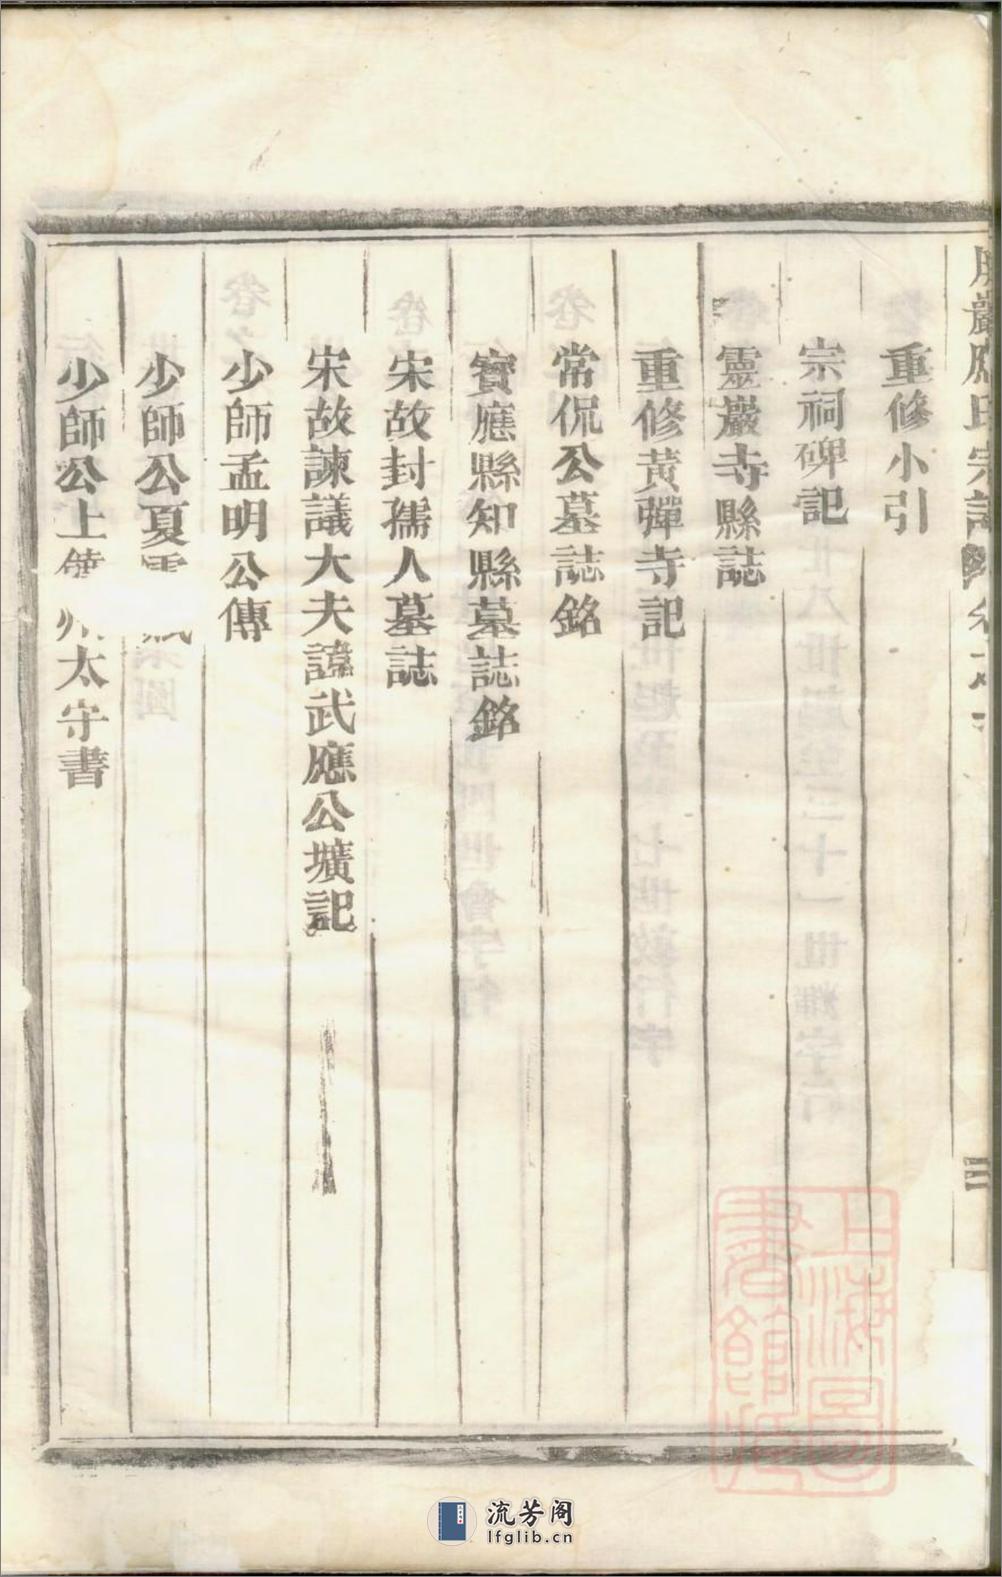 重修小引
宗祠碑記
靈巖寺縣誌
重修黃彈寺記
常侃公墓誌銘
寶應縣知縣墓誌銘
宋故封孺人墓誌
宋故諫議大夫諱武應公壙記
少師孟明公傳
少師公夏
少師公上 太守書
上海圖書館藏
流芳阁
lfglib.cn